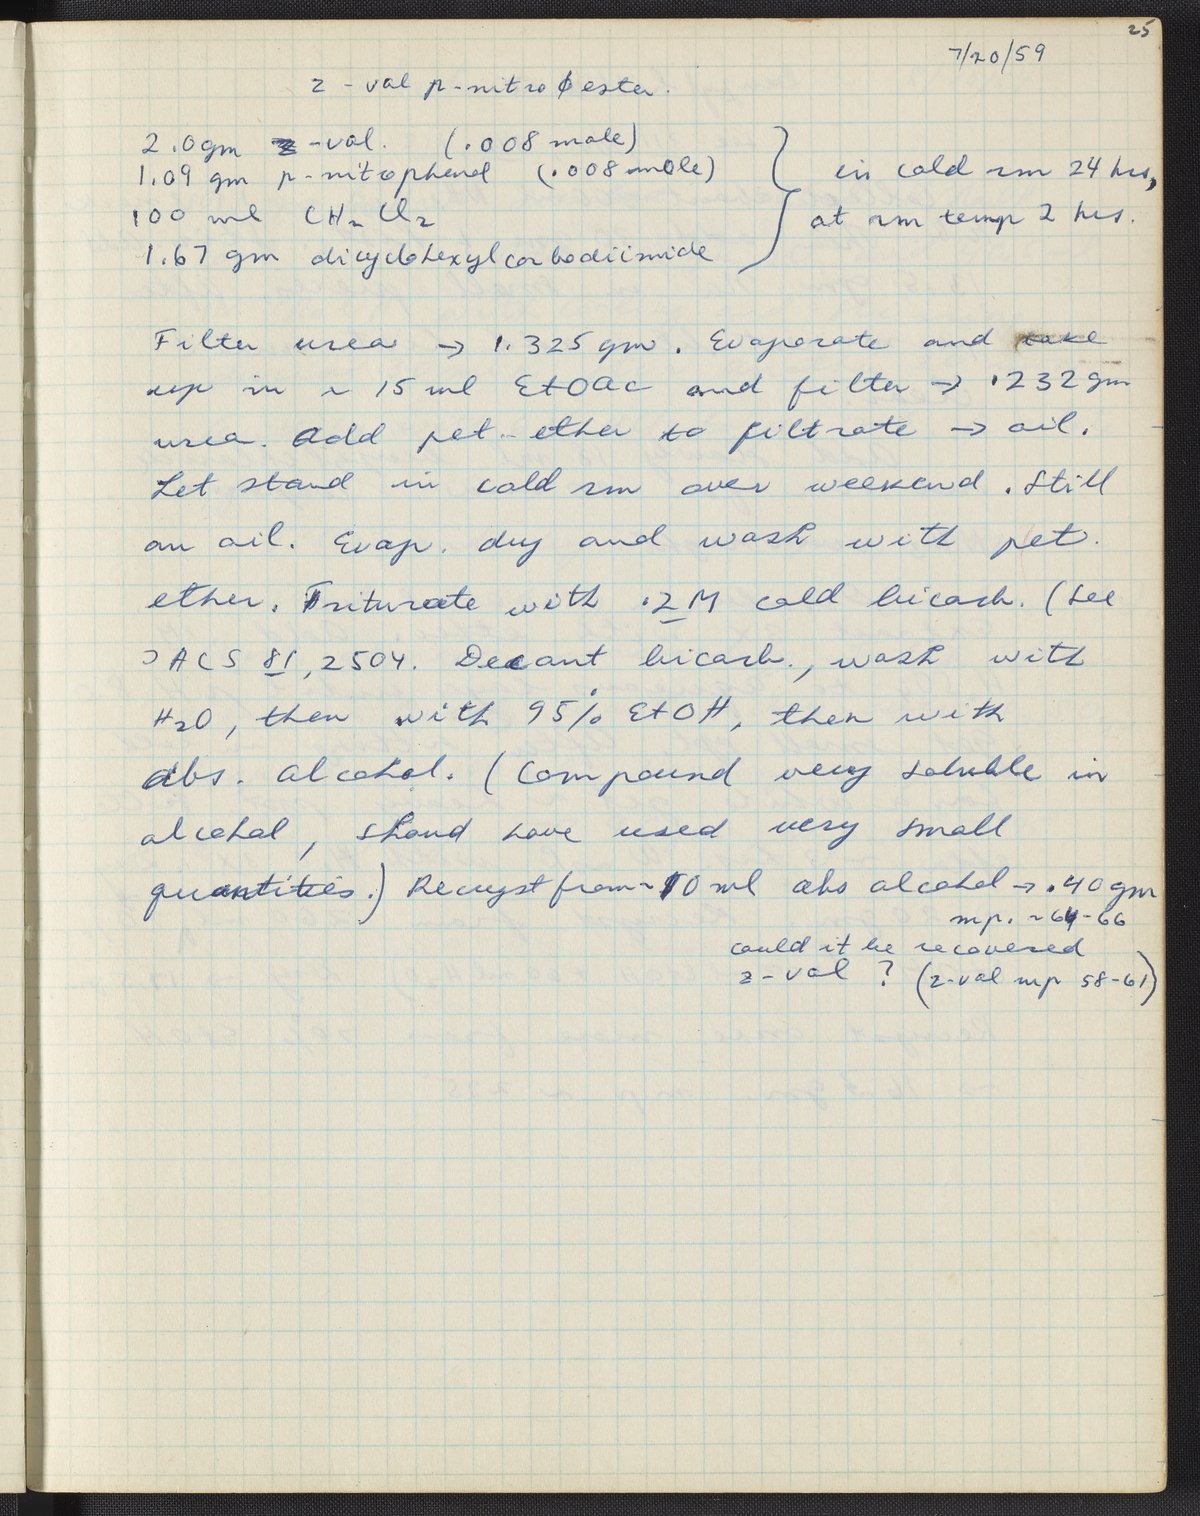 25
7/20/59
z - val p-nitro ϕ ester.
2.0 gm z-val. (.008 mole)
1.09 gm p-nitrophenol (.008 mole)
100 ml CH2Cl2
1.67 gm dicyclohexylcarbodiimide
in cold rm 24 hrs,
at rm temp 2 hrs.
Filter urea → 1.325 gm. Evaporate and take
up in ~ 15 ml EtOAc and filter → .232 gm
urea. Add pet. ether to filtrate → oil.
Let stand in cold rm over weekend. Still
an oil. Evap. dry and wash with pet.
ether. Triturate with .2 M cold bicarb. (See
JACS 81, 2504. Decant bicarb., wash with
H2O, then with 95% EtOH, then with
abs. alcohol. (Compound very soluble in
alcohol, shoud have used very small
quantities.) Recryst from ~10 ml abs alcohol → .40 gm
mp. ~64-66
could it be recovered
z-val ? (z-val mp 58-61)